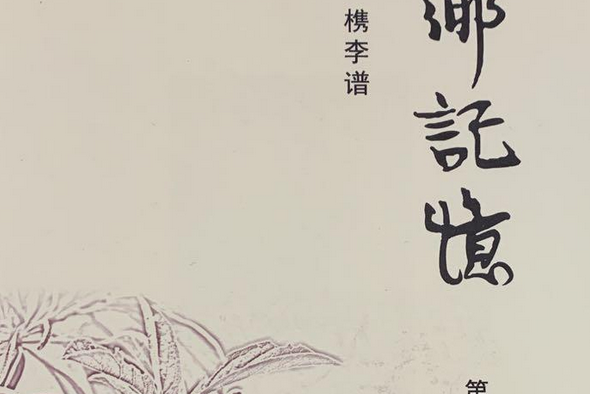 鄉記憶
槜李谱
第